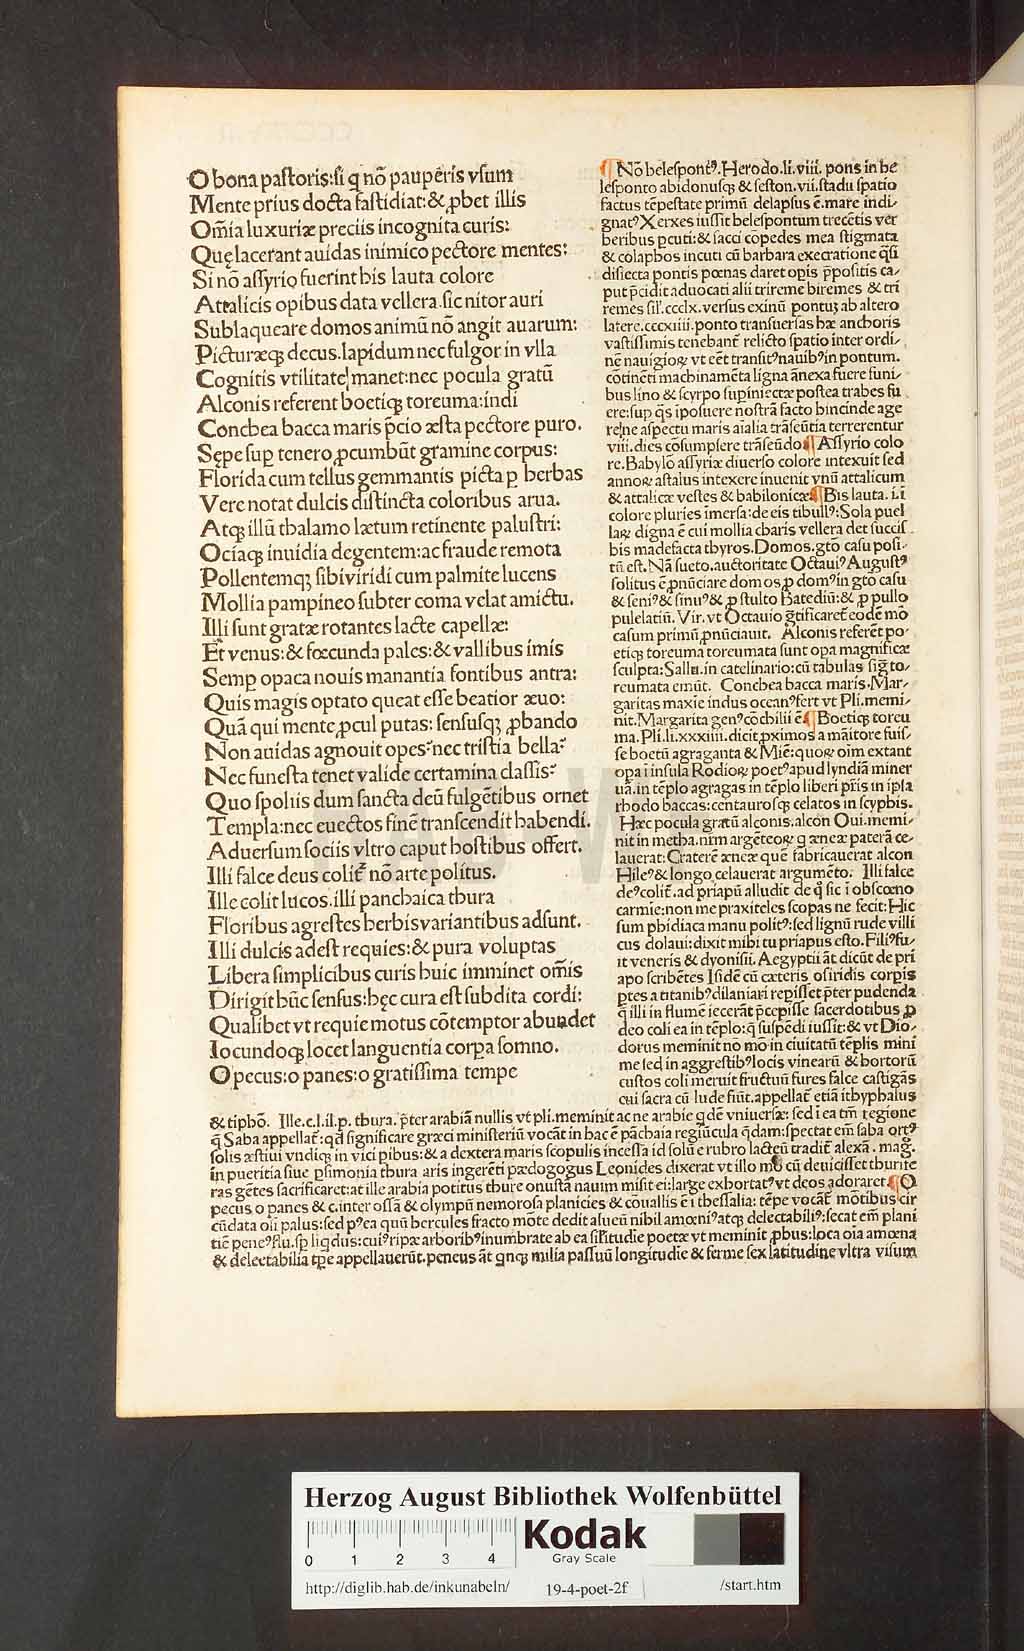 O bona pastoris: si q nō pauperis vsum
Mente prius docta fastidiat: & ꝓbet illis
Om̄ia luxuriæ preciis incognita curis:
Quę lacerant auidas inimico pectore mentes:
Si nō assyrio fuerint bis lauta colore
Attalicis opibus data vellera. sic nitor auri
Sublaqueare domos animū nō angit auarum:
Picturæq; decus. lapidum nec fulgor in vlla
Cognitis vtilitate manet: nec pocula gratū
Alconis referent boetiq; toreuma: indi
Conchea bacca maris p̄cio æsta pectore puro.
Sępe sup tenero ꝓcumbūt gramine corpus:
Florida cum tellus gemmantis picta p herbas
Vere notat dulcis distincta coloribus arua.
Atq; illū thalamo lætum retinente palustri:
Ociaq; inuidia degentem: ac fraude remota
Pollentemq; sibi viridi cum palmite lucens
Mollia pampineo subter coma velat amictu.
Illi sunt gratæ rotantes lacte capellæ:
Et venus: & fœcunda pales: & vallibus imis
Semp opaca nouis manantia fontibus antra:
Quis magis optato queat esse beatior æuo:
Quā qui mente ꝓcul putas: sensusq; ꝓbando
Non auidas agnouit opes: nec tristia bella:
Nec funesta tenet valide certamina classis:
Quo spoliis dum sancta deū fulgētibus ornet
Templa: nec euectos finē transcendit habendi.
Aduersum sociis vltro caput hostibus offert.
Illi falce deus colit̄ nō arte politus.
Ille colit lucos. illi panchaica thura
Floribus agrestes herbis variantibus adsunt.
Illi dulcis adest requies: & pura voluptas
Libera simplicibus curis huic imminet om̄is
Dirigit hūc sensus: hęc cura est subdita cordi:
Qualibet vt requie motus cōtemptor abundet
Iocundoq; locet languentia corpa somno.
O pecus: o panes: o gratissima tempe
¶ Nō helespontꝰ. Herodo. li. viii. pons in he
lesponto abidonusq; & seston. vii. stadii spatio
factus tēpestate primū delapsus ē. mare indi
gnatꝰ Xerxes iussit helespontum trecētis ver
beribus pcuti: & facci cōpedes mea stigmata
& colaphos incuti cū barbara execratione q̄si
disiecta pontis pœnas daret opis p̄positis ca
put p̄cidit aduocati alii trireme biremes & tri
remes sil. ccclx. versus exinū pontuz ab altero
latere. cccxiiii. ponto transuersas hæ anchoris
vastissimis tenebant̄ relicto spatio inter ordi
nē nauigioꝝ vt eēt transitꝰ nauibꝰ in pontum.
cōtinēti machinamēta ligna ānexa fuere funi
bus lino & scyrpo supiniectæ postea trabes fu
ere: sup q̄s iposuere nostrā facto hincinde age
re: ne aspectu maris aialia trāseūtia terrerentur
viii. dies cōsumpsere trāseūdo ¶ Assyrio colo
re. Babylō assyriæ diuerso colore intexuit sed
annoꝝ astalus intexere inuenit vnū attalicum
& attalicæ vestes & babilonicæ ¶ Bis lauta. i. i
colore pluries īmersa: de eis tibullꝰ: Sola puel
laꝝ digna ē cui mollia charis vellera det succis
bis madefacta thyros. Domos. gto casu posi
tū est. Nā sueto. auctoritate Octauiꝰ Augustꝰ
solitus ē ꝓnūciare domos ꝓ domꝰ in gto casu
& seniꝰ & sinuꝰ & ꝓ stulto Batediū: & ꝓ pullo
pulelatiū. Vir. vt Octauio gtificaret̄ eodē mō
casum primū ꝓnūciauit. Alconis referēt po
etiq; toreuma toreumata sunt opa magnificæ
sculpta: Sallu. in catelinario: cū tabulas sig to
reumata emūt. Conchea bacca maris. Mar
garitas maxie indus oceanꝰ fert vt Pli. memi
nit. Margarita genꝰ cōchilii ē ¶ Boetiq; toreu
ma. Pli. li. xxxiii. dicit ꝓximos a māitore fuis
se boetū agraganta & Miē: quoꝝ oim extant
opa i insula Rodioꝝ poetꝰ apud lyndiā miner
uā. in tēplo agragas in tēplo liberi pr̄is in ipsa
rhodo baccas: centaurosq; celatos in scyphis.
Hæc pocula gratū alconis. alcon Oui. memi
nit in metha. nrm argēteoꝝ q æneæ paterā ce
lauerat: Craterē æneæ quē fabricauerat alcon
Hileꝰ & longo celauerat argumēto. Illi falce
deꝰ colit̄. ad priapū alludit de q̄ sic i obscœno
carmie: non me praxiteles scopas ne fecit: Hic
sum phidiaca manu politꝰ: sed lignū rude villi
cus dolaui: dixit mihi tu priapus esto. Filiꝰ fu
it veneris & dyonisii. Aegyptii āt dicūt de pri
apo scribētes Isidē cū cæteris osiridis corpis
ptes a titanibꝰ dilaniari repisset p̄ter pudenda
q̄ illi in flumē iecerāt p̄cepisse sacerdotibus ꝓ
deo coli ea in tēplo: q̄ suspēdi iussit: & vt Dio
dorus meminit nō mō in ciuitatū tēplis mini
me sed in aggrestibꝰ locis vinearū & hortorū
custos coli meruit fructuū fures falce castigās
cui sacra cū lude fiūt. appellat̄ etiā ithyphalus
& tiphō. Ille. c. l. il. p. thura. p̄ter arabiā nullis vt pli. meminit ac ne arabie q̄dē vniuersæ: sed i ea tm̄ regione
q̄ Saba appellat̄: qd significare græci ministeriū vocāt in hac ē pāchaia regiūcula q̄dam: spectat em̄ saba ortꝰ
solis æstiui vndiq; in vici pibus: & a dextera maris scopulis incessa id solū e rubro lacteū tradit̄ alexā. mag.
in pueritia siue p̄simonia thura aris ingerēti pædogogus Leonides dixerat vt illo mō cū deuicisset thurife
ras gētes sacrificaret: at ille arabia potitus thure onustā nauim misit ei: large exhortatꝰ vt deos adoraret ¶ O
pecus o panes & c. inter ossā & olympū nemorosa planicies & cōuallis ē i thessalia: tēpe vocāt̄ mōtibus cir
cūdata oli palus: sed pꝰea quū hercules fracto mōte dedit alueū nihil amœniꝰ atq; delectabiliꝰ: secat em̄ plani
tiē peneꝰ flu. sp̄ liqdus: cuiꝰ ripæ arboribꝰ inumbrate ab ea sil̄itudie poetæ vt meminit ꝓbus: loca oia amœna
& delectabilia tp̄e appellauerūt. peneus āt qnq; milia passuū longitudie & ferme sex latitudine vltra visum
Herzog August Bibliothek Wolfenbüttel
0 1 2 3 4
Kodak
Gray Scale
http://diglib.hab.de/inkunabeln/ 19-4-poet-2f /start.htm